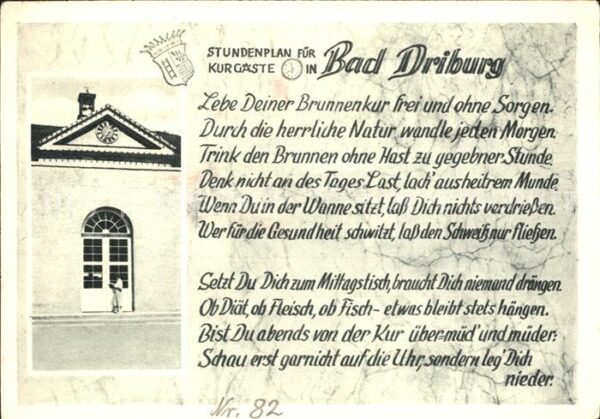 STUNDENPLAN FÜR
KURGÄSTE IN Bad Driburg
Lebe Deiner Brunnenkur frei und ohne Sorgen.
Durch die herrliche Natur wandle jeden Morgen.
Trink den Brunnen ohne Hast zu gegebner Stunde.
Denk nicht an des Tages Last, lach' aus heitrem Munde.
Wenn Du in der Wanne sitzt, laß Dich nichts verdrießen.
Wer für die Gesundheit schwitzt, laß den Schweiß nur fließen.
Setzt Du Dich zum Mittagstisch, braucht Dich niemand drängen.
Ob Diät, ob Fleisch, ob Fisch - etwas bleibt stets hängen.
Bist Du abends von der Kur über-müd' und müder:
Schau erst garnicht auf die Uhr, sondern leg' Dich
nieder.
Nr. 82